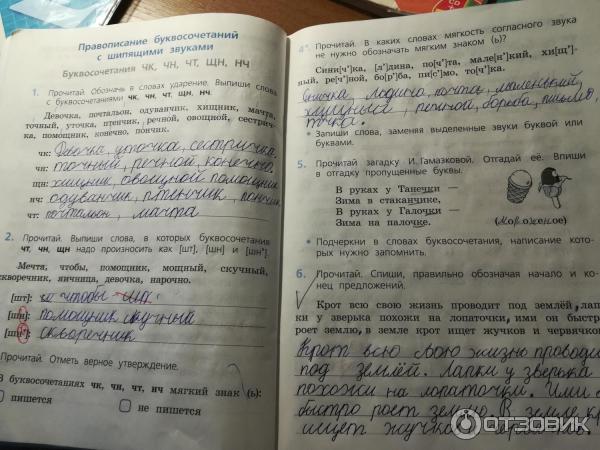 Правописание буквосочетаний
с шипящими звуками
Буквосочетания ЧК, ЧН, ЧТ, ЩН, НЧ
1. Прочитай. Обозначь в словах ударение. Выпиши слова
с буквосочетаниями чк, чн, чт, щн, нч.
Девочка, почтальон, одуванчик, хищник, мачта,
точный, уточка, птенчик, речной, овощной, сестрич-
ка, помощник, конечно, пончик.
чк: Девочка, уточка, сестричка.
чн: точный, речной, конечно.
щн: хищник, овощной помощник
нч: одуванчик, птенчик, пончик
чт: почтальон, мачта
2. Прочитай. Выпиши слова, в которых буквосочетания
чт, чн, щн надо произносить как [шт], [шн] и [шн'].
Мечта, чтобы, помощник, мощный, скучный,
скворечник, яичница, девочка, нарочно.
[шт]: чтобы
[шн]: помощник скучный
[шн']: скворечник
Прочитай. Отметь верное утверждение.
В буквосочетаниях чк, чн, чт, нч мягкий знак (ь):
пишется
не пишется
4*. Прочитай. В каких словах мягкость согласного звука
не нужно обозначать мягким знаком (ь)?
Сини[ч']ка, [л']дина, по[ч']та, мале[н']кий, хи[щ']-
ный, ре[ч']ной, бо[р']ба, пи[с']мо, то[ч']ка.
почта, маленький
речной, борьба, письмо,
• Запиши слова, заменяя выделенные звуки буквой или
буквами.
5. Прочитай загадку И. Гамазковой. Отгадай её. Впиши
в отгадку пропущенные буквы.
В руках у Танечки —
Зима в стаканчике,
В руках у Галочки —
Зима на палочке.
(Мороженое)
• Подчеркни в словах буквосочетания, написание кото-
рых нужно запомнить.
6. Прочитай. Спиши, правильно обозначая начало и ко-
нец предложений.
Крот всю свою жизнь проводит под землёй, лап
ки у зверька похожи на лопаточки, ими он быстр
роет землю, в земле крот ищет жучков и червячко
Крот всю свою жизнь проводи
под землёй. Лапки у зверька
похожи на лопаточки. Ими о
быстро роет землю. В земле кр
ищет жучко
ОТЗОВИК